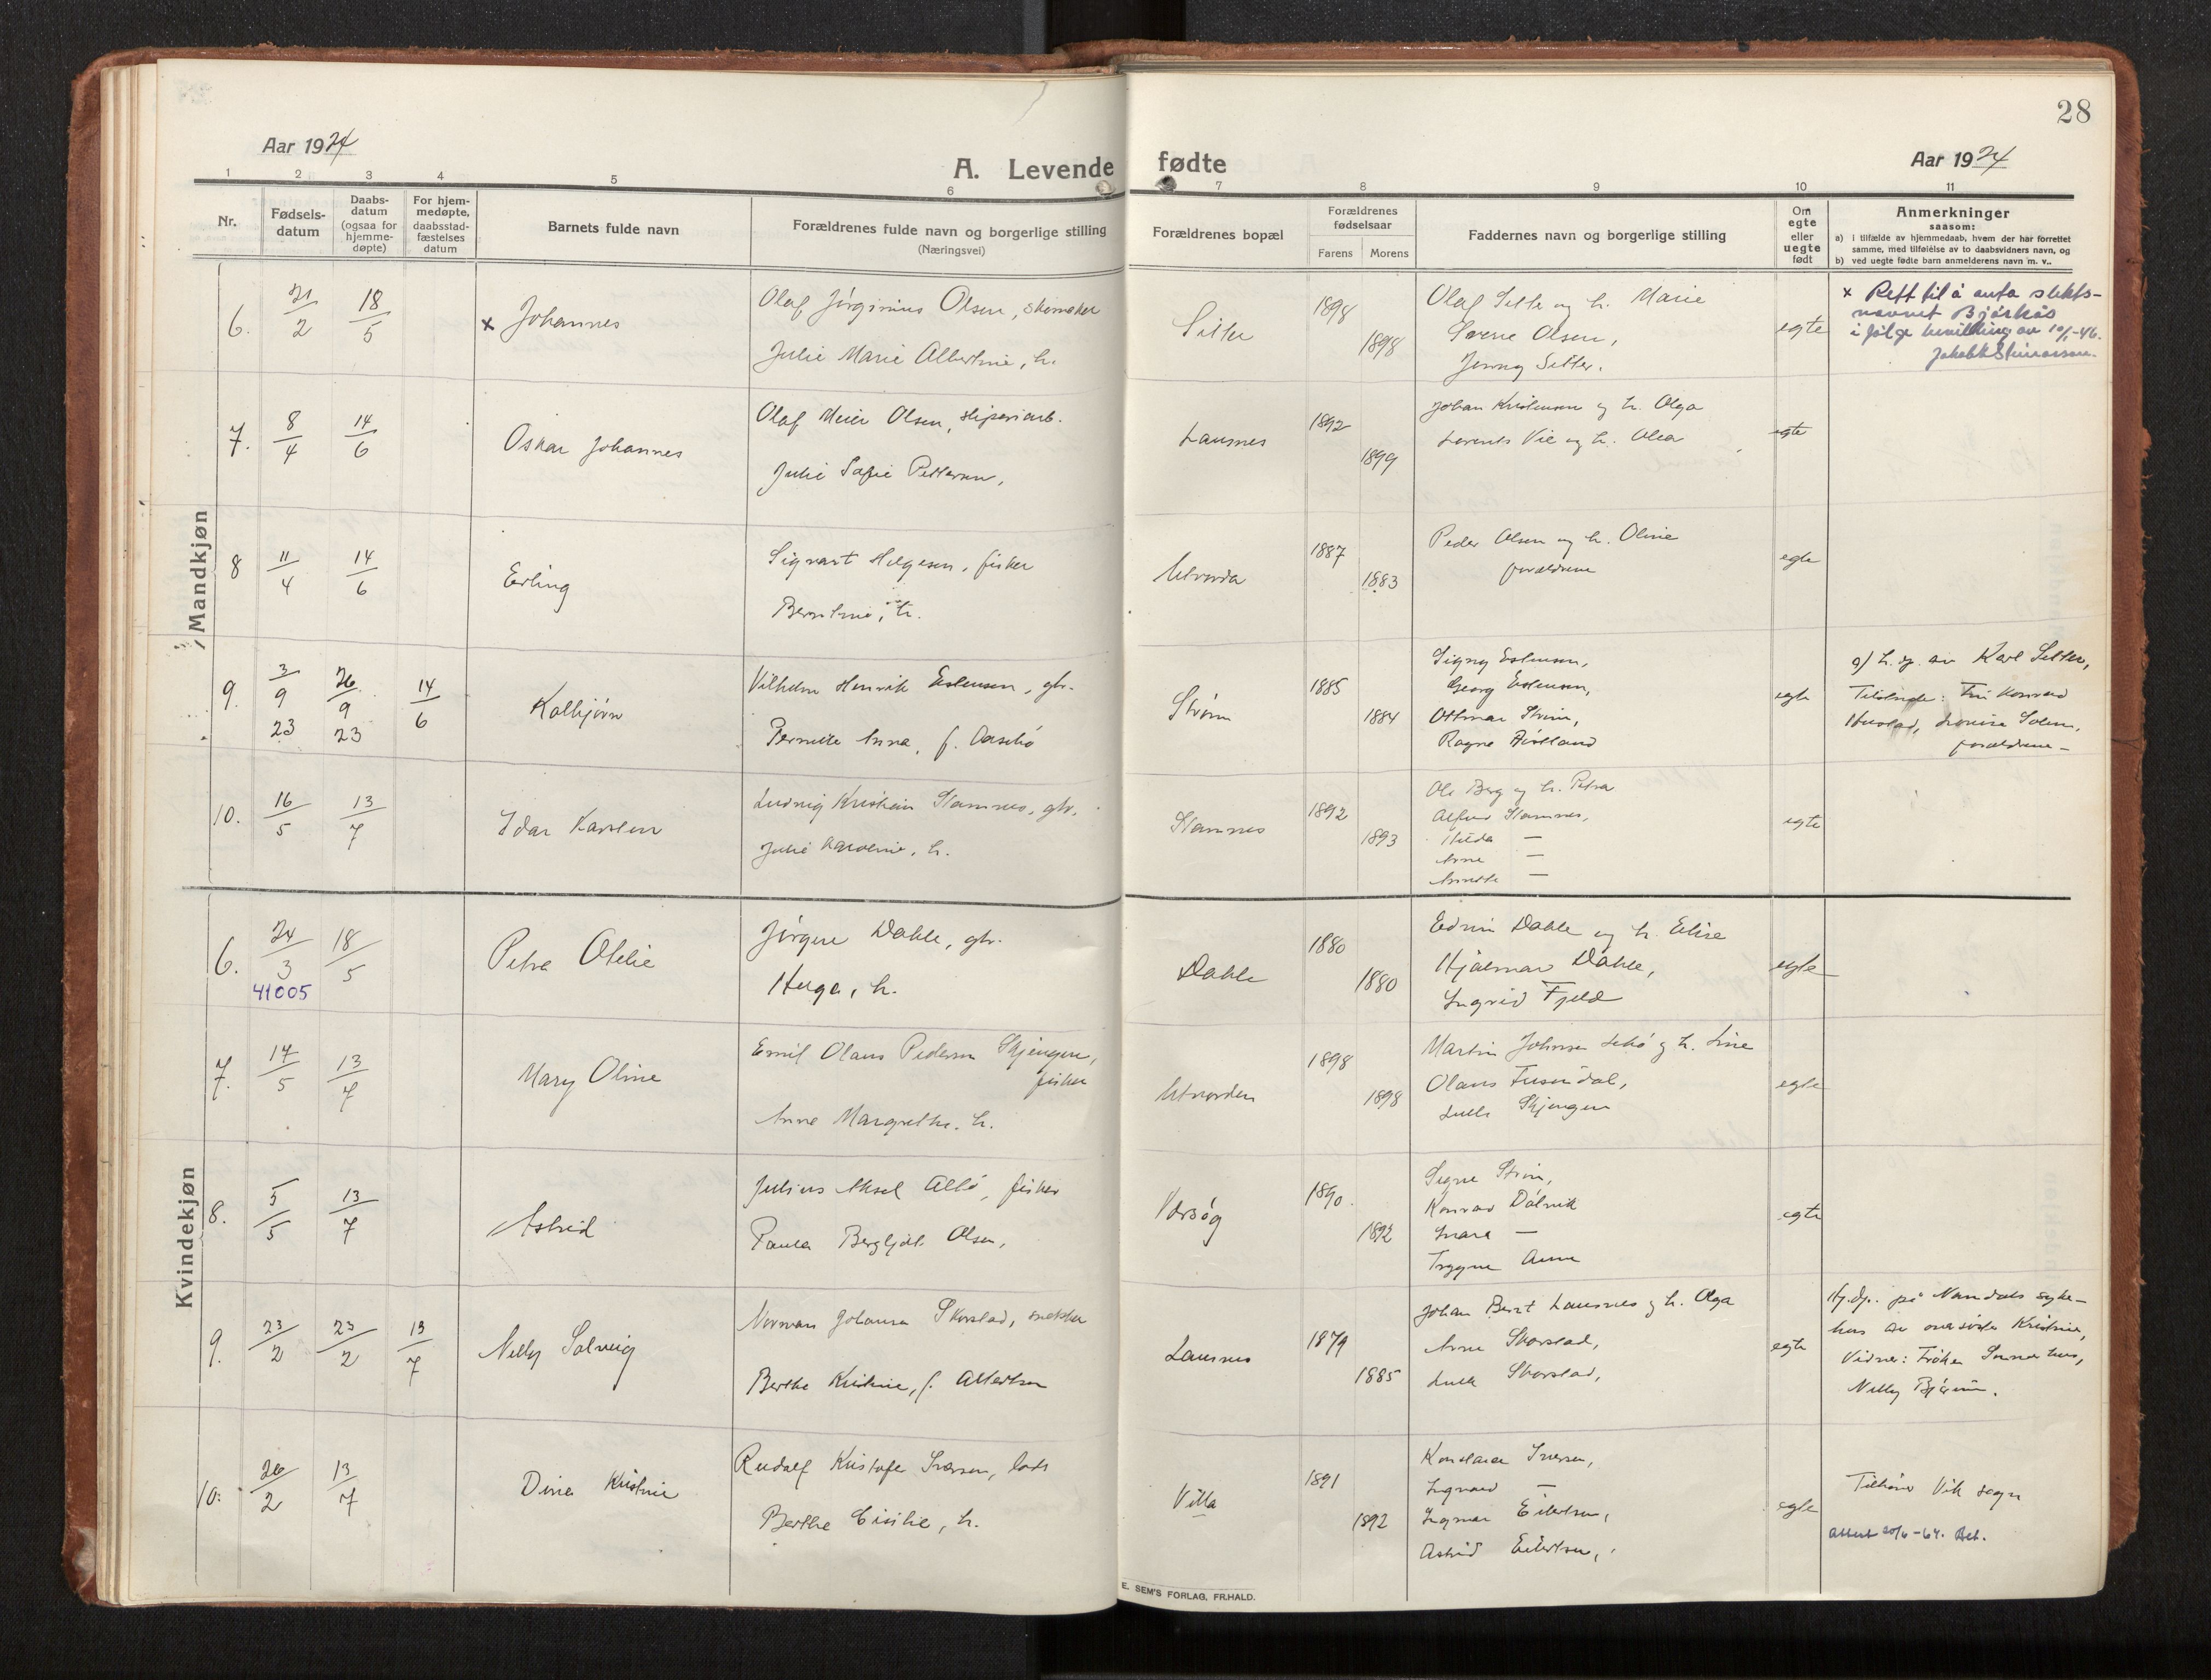 28
Aar 1924
A. Levende fødte
Aar 1924
1 2 3 4 5 6 7 8 9 10 11
Nr.
Fødsels-
datum
Daabs-
datum
(ogsaa for
hjemme-
døpte)
For hjem-
medøpte,
daabsstad-
fæstelses
datum
Barnets fulde navn
Forældrenes fulde navn og borgerlige stilling
(Næringsvei)
Forældrenes bopæl
Forældrenes
fødselsaar
Farens Morens
Faddernes navn og borgerlige stilling
Om
egte
eller
uegte
født
Anmerkninger
saasom:
a) i tilfælde av hjemmedaab, hvem der har forrettet
samme, med tilføielse av to daabsvidners navn, og
b) ved uegte fødte barn anmelderens navn m. v..
Mandkjøn
6. 21/2 18/5
x Johannes
Olaf Jørginius Olsen, skomaker
Julie Marie Albertine, h.
Sitter
1898
1898
Olaf Sitter og h. Marie
Olsen,
Jenny Sitter.
egte
x Rett til å anta slekts-
navnet Bjørkås
i følge bevilling av 10/1-46.
7. 8/4 14/6
Oskar Johannes
Olaf Meier Olsen, sliperiarb.
Julie Sofie Pettersen,
Lausnes
1892
1899
Johan Kristensen og h. Olga
Lorents Vie og h. Olea
egte
8 11/4 14/6
Erling
Sigvart Helgesen, fisker
Berntine, h.
Utvorda
1887
1883
Peder Olsen og h. Oline
forældrene
egte
9. 3/9 23 26/9 23 14/6
Kolbjørn
Vilhelm Henrik Estensen, gbr.
Pernille Anna, f.
Strøm
1885
1884
Signy Estensen,
Georg Estensen,
Ottmar Strøm,
Ragna
egte
a) h. dp. av Karl Sitter,
Tilstede: Konrad
Hustad, Lovise Solem,
forældrene
10. 16/5 13/7
Idar Karsten
Ludvig Kristian Stamnes, gbr.
Julie Karoline, h.
Stamnes
1892
1893
Ole Berg og h. Petra
Alfred Stamnes,
Hilda —
Arne —
Annette —
egte
Kvindekjøn
6. 24/3 18/5
41005
Petra Otelie
Jørgen Dahle, gbr.
Helga, h.
Dahle
1880
1880
Edvin Dahle og h. Elise
Hjalmar Dahle,
Ingrid Fjeld
egte
7. 14/5 13/7
Mary Oline
Emil Olaus Pedersen Skjengen,
fisker
Anne Margrethe, h.
Utvorden
1898
1898
Martin Johnsen og h. Line
Olaus
Skjengen
egte
8. 5/5 13/7
Astrid
Julius Aksel Altø, fisker
Paula Bergljot Olsen,
Vorsøg
1890
1892
Signe Strøm,
Konrad Dølvik
—
Trygve
egte
9. 23/2 23/2 13/7
Nelly Solveig
Norman Johansen Skorstad, snekker
Berthe Kristine, f. Albertsen
Lausnes
1879
1885
Johan Bernt Lausnes og h. Olga
Arne Skorstad,
Skorstad,
egte
Hj.dp. på Namdals syke-
hus av oversøster Kristine,
Vidner: Frøken
Nelly
10. 26/2 13/7
Dina Kristine
Rudolf Kristofer Iversen, lods
Berthe Cicilie, h.
Villa
1891
1892
Konstanse Iversen,
Ingvard —
Ingmar Eilertsen,
Astrid Eilertsen,
egte
Tilhører Vik sogn
Attest 20/6-64.
E. SEM'S FORLAG, FR.HALD.